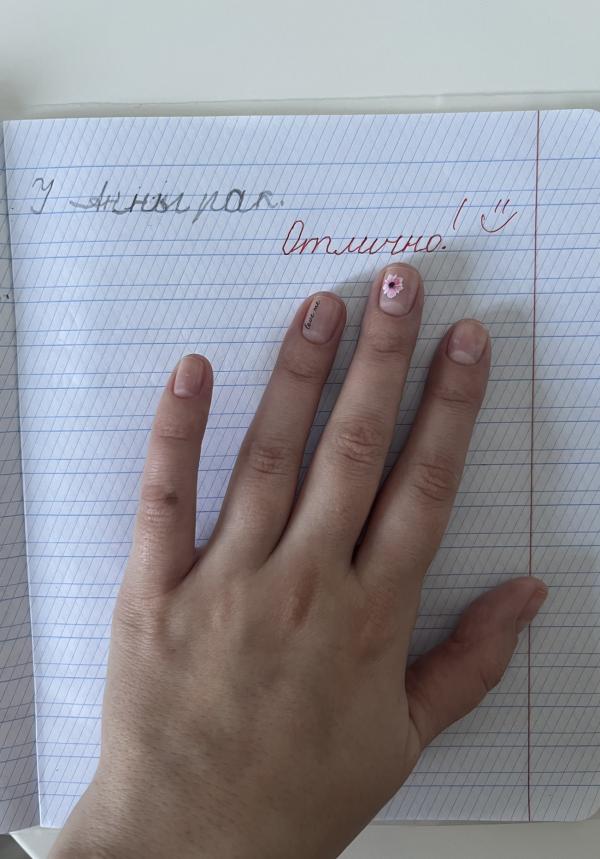 У Анны рак.
Отлично!
love me